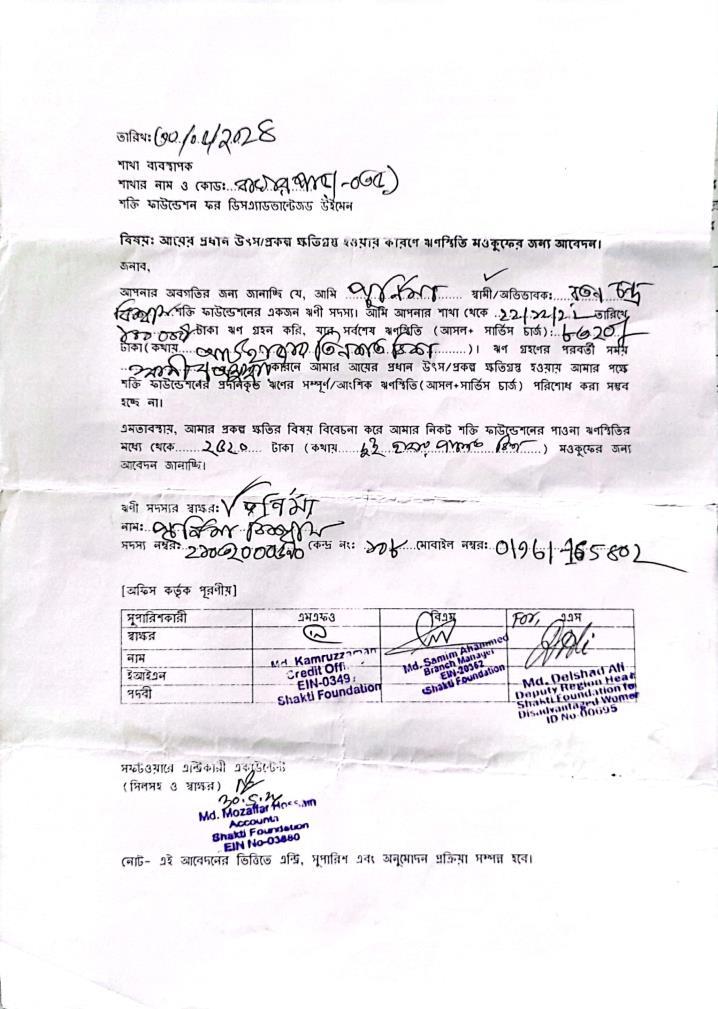 তারিখঃ
শাখা ব্যবস্থাপক
শাখার নাম ও কোডঃ
শক্তি ফাউন্ডেশন ফর ডিসএ্যাডভান্টেজড উইমেন
বিষয়ঃ আয়ের প্রধান উৎস/প্রকল্প ক্ষতিগ্রস্ত হওয়ার কারণে ঋণস্থিতি মওকুফের জন্য আবেদন।
জনাব,
আপনার অবগতির জন্য জানাচ্ছি যে, আমি পূর্নিমা স্বামী/অভিভাবক: রতন চন্দ্র
বিশ্বাস শক্তি ফাউন্ডেশনের একজন ঋণী সদস্য। আমি আপনার শাখা থেকে তারিখে
টাকা ঋণ গ্রহন করি, যার সর্বশেষ ঋণস্থিতি (আসল+ সার্ভিস চার্জ): ৮৩২০/
টাকা(কথায় আট হাজার তিনশত বিশ )। ঋণ গ্রহণের পরবর্তী সময়
কারনে আমার আয়ের প্রধান উৎস/প্রকল্প ক্ষতিগ্রস্ত হওয়ায় আমার পক্ষে
শক্তি ফাউন্ডেশনের প্রদানকৃত ঋণের সম্পূর্ণ/আংশিক ঋণস্থিতি(আসল+সার্ভিস চার্জ) পরিশোধ করা সম্ভব
হচ্ছে না।
এমতাবস্থায়, আমার প্রকল্প ক্ষতির বিষয় বিবেচনা করে আমার নিকট শক্তি ফাউন্ডেশনের পাওনা ঋণস্থিতির
মধ্যে থেকে ২৫২০ টাকা (কথায় দুই হাজার পাঁচশত বিশ ) মওকুফের জন্য
আবেদন জানাচ্ছি।
ঋণী সদস্যর স্বাক্ষর: পূর্নিমা
নাম: পূর্নিমা বিশ্বাস
সদস্য নম্বর: কেন্দ্র নং: মোবাইল নম্বর:
[অফিস কর্তৃক পূরণীয়]
সুপারিশকারী এমএফও বিএম For, এএস
স্বাক্ষর
নাম
ইআইএন
পদবী
Md. Kamruzzaman
Credit Offi
EIN-0349
Shakti Foundation
Md. Samim Ahammed
Branch Manager
EIN-20362
Shakti Foundation
Md. Delshad Ali
Deputy Region Head
Shakti Foundation for
Disadvantaged Women
ID No 00695
সফটওয়ারে এন্ট্রিকারী একাউন্টেন্ট
(সিলসহ ও স্বাক্ষর)
Md. Mozaffar Hossain
Accounts
Shakti Foundation
EIN No-03880
নোট- এই আবেদনের ভিত্তিতে এন্ট্রি, সুপারিশ এবং অনুমোদন প্রক্রিয়া সম্পন্ন হবে।